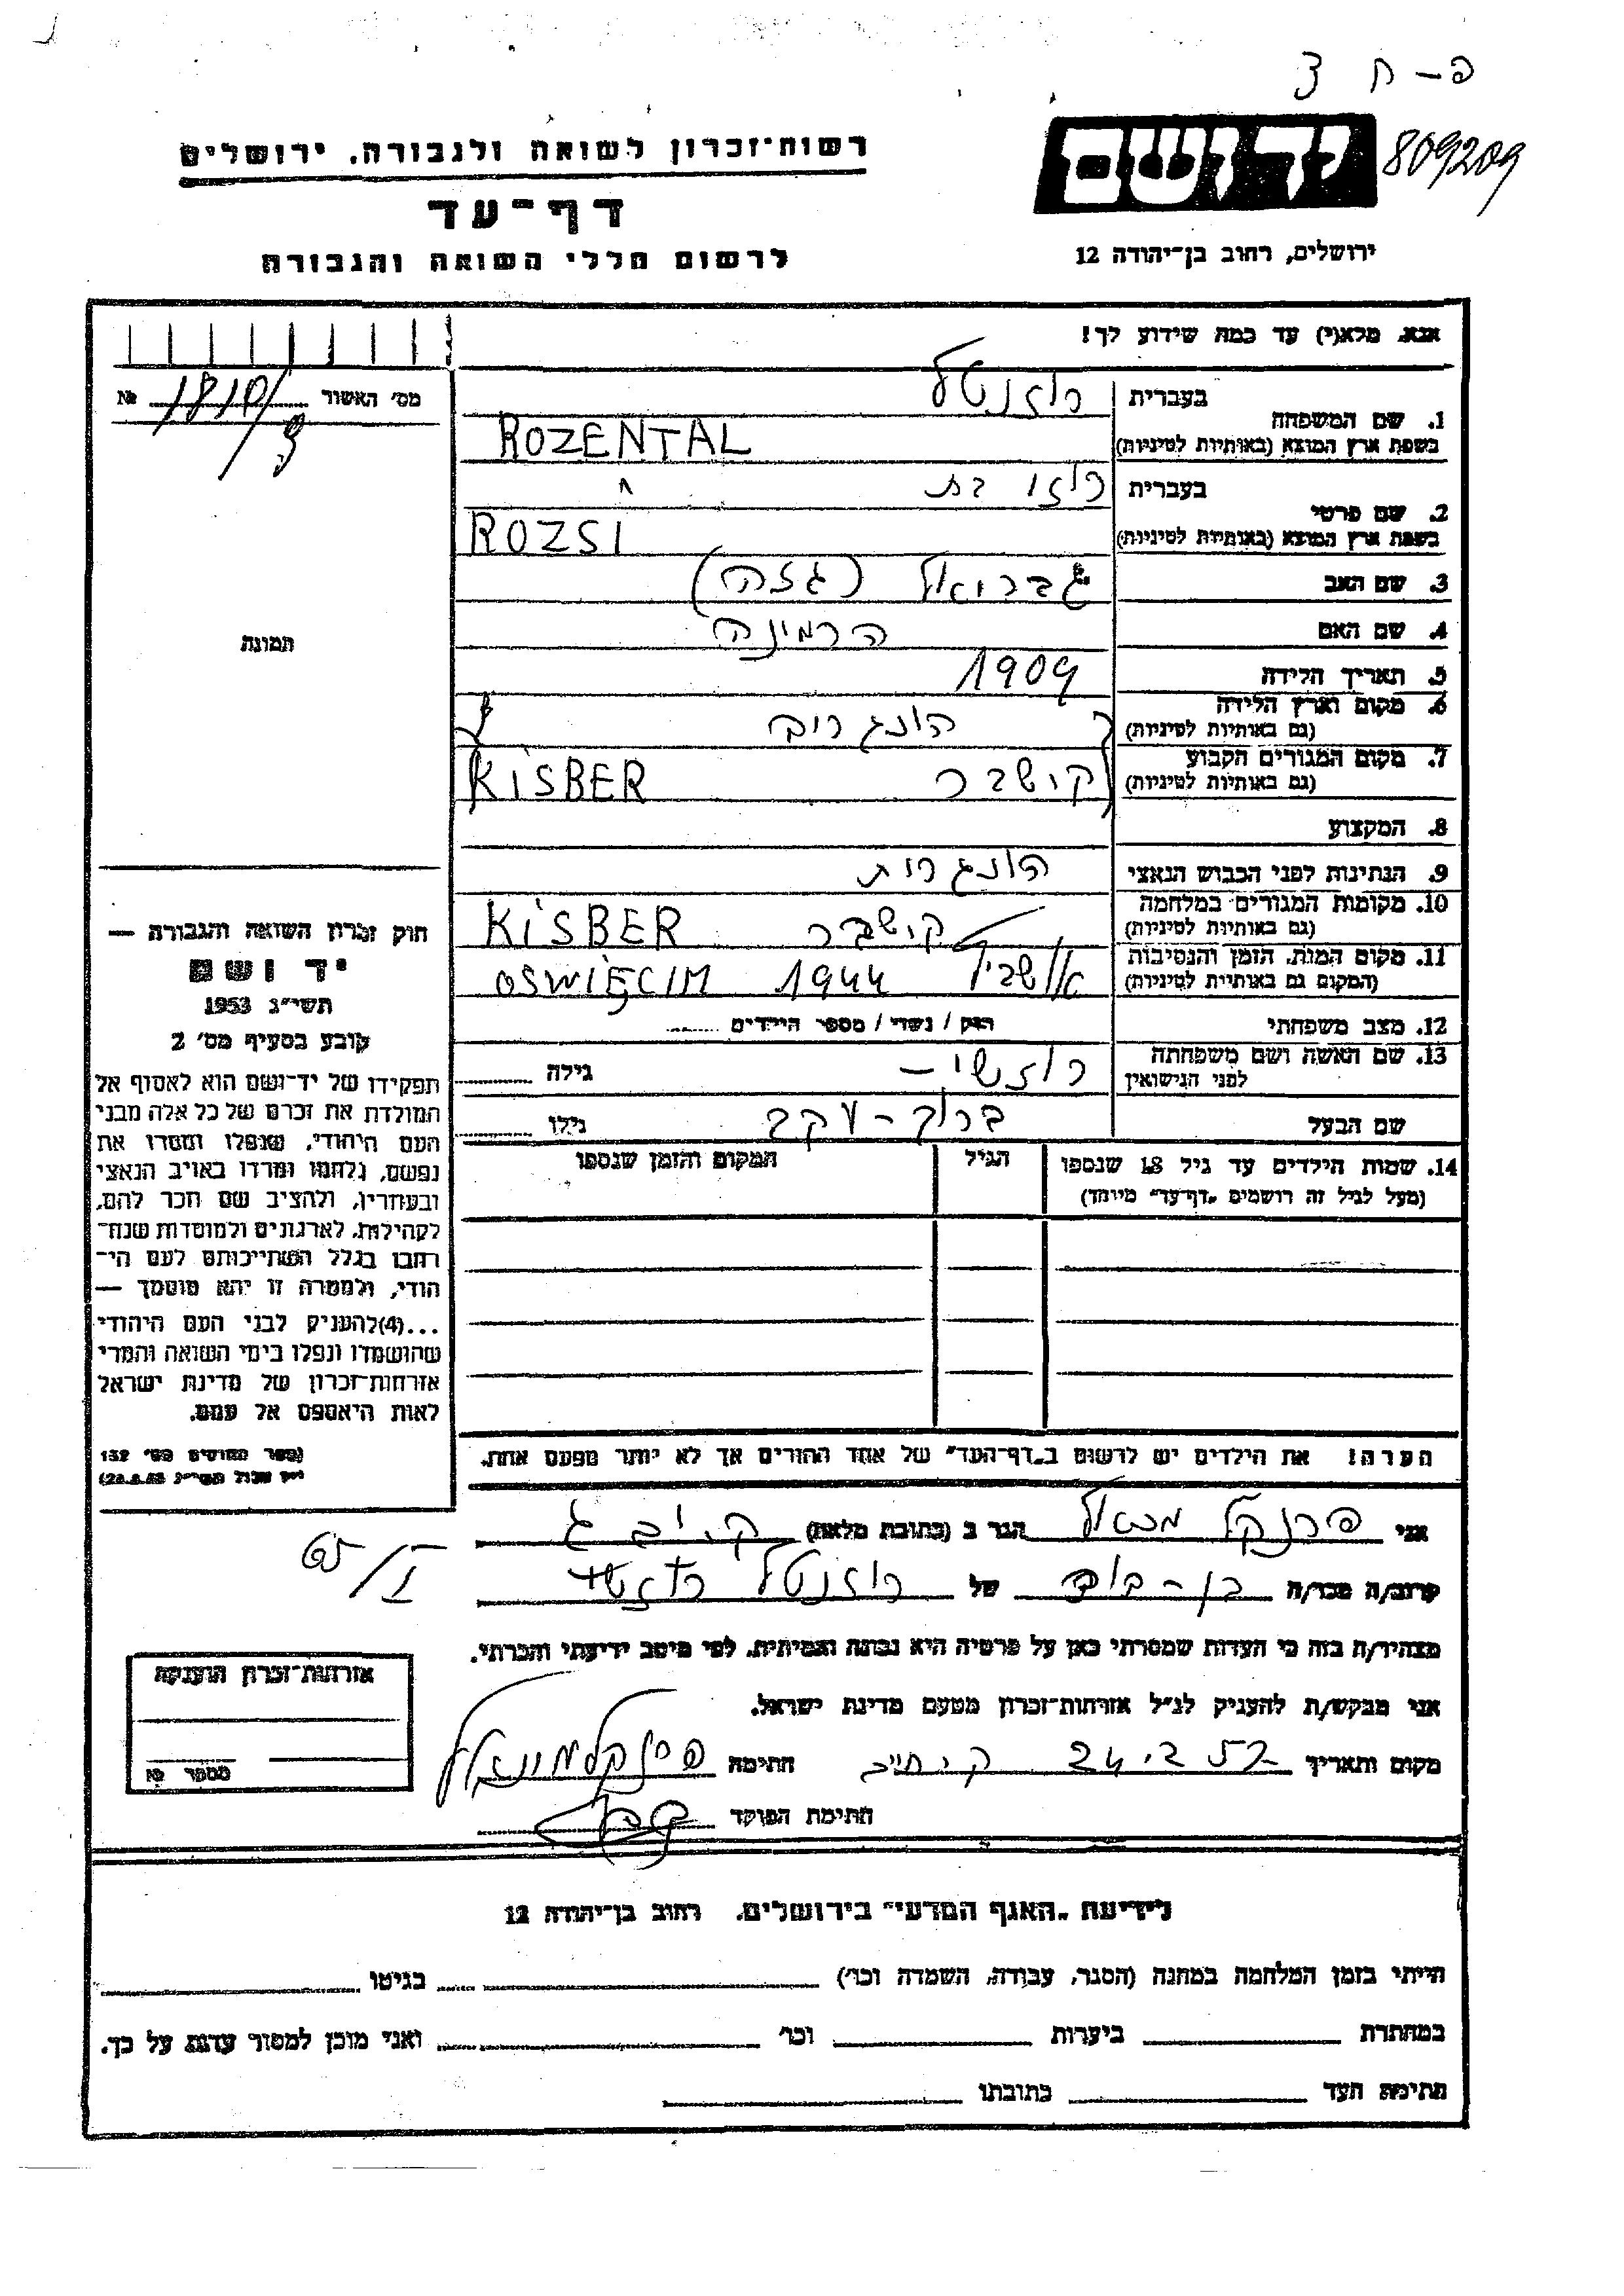 פ-ח 3
יד ושם
809209
רשות-זכרון לשואה ולגבורה, ירושלים
דף-עד
לרשום חללי השואה והגבורה
ירושלים, רחוב בן-יהודה 12
אנא, מלא(י) עד כמה שידוע לך!
מס' האשור №
1. שם המשפחה
בעברית רוזנטל
בשפת ארץ המוצא (באותיות לטיניות) ROZENTAL
2. שם פרטי
בעברית
בשפת ארץ המוצא (באותיות לטיניות) ROZSI
3. שם האב גבריאל (גזה)
4. שם האם הרמינה
5. תאריך הלידה 1909
6. מקום וארץ הלידה הונגריה
(גם באותיות לטיניות)
7. מקום המגורים הקבוע קישבר KISBER
(גם באותיות לטיניות)
8. המקצוע
9. הנתינות לפני הכבוש הנאצי הונגרית
10. מקומות המגורים במלחמה קישבר KISBER
(גם באותיות לטיניות)
11. מקום המות, הזמן והנסיבות אושביץ 1944 OSWIĘCIM
(המקום גם באותיות לטיניות)
12. מצב משפחתי רווק / נשוי / מספר הילדים
13. שם האשה ושם משפחתה רוזשי – גילה
לפני הנישואין
שם הבעל ברוך-יעקב גילו
14. שמות הילדים עד גיל 18 שנספו הגיל המקום והזמן שנספו
(מעל לגיל זה רושמים „דף-עד" מיוחד)
הערה! את הילדים יש לרשום ב„דף-העד" של אחד ההורים אך לא יותר מפעם אחת.
תמונה
חוק זכרון השואה והגבורה —
יד ושם
תשי"ג 1953
קובע בסעיף מס' 2
תפקידו של יד-ושם הוא לאסוף אל
המולדת את זכרם של כל אלה מבני
העם היהודי, שנפלו ומסרו את
נפשם, נלחמו ומרדו באויב הנאצי
ובעוזריו, ולהציב שם וזכר להם,
לקהילות, לארגונים ולמוסדות שנח-
רבו בגלל השתייכותם לעם הי-
הודי, ולמטרה זו יהא מוסמך —
...(4)להעניק לבני העם היהודי
שהושמדו ונפלו בימי השואה והמרי
אזרחות-זכרון של מדינת ישראל
לאות היאספם אל עמם.
(ספר החוקים מס' 132
אני פרנקל הגר ב (כתובת מלאה)
קרוב/ה מכר/ה בן-דוד של רוזנטל רוזשי
מצהיר/ה בזה כי העדות שמסרתי כאן על פרטיה היא נכונה ואמיתית, לפי מיטב ידיעתי והכרתי.
אני מבקש/ת להעניק לנ"ל אזרחות-זכרון מטעם מדינת ישראל.
מקום ותאריך חתימה
חתימת הפוקד
אזרחות-זכרון הוענקה
מספר №
לידיעת „האגף המדעי" בירושלים, רחוב בן-יהודה 12
הייתי בזמן המלחמה במחנה (הסגר, עבודה, השמדה וכו') בגיטו
במחתרת ביערות וכו' ואני מוכן למסור עדות על כך.
חתימת העד כתובתו